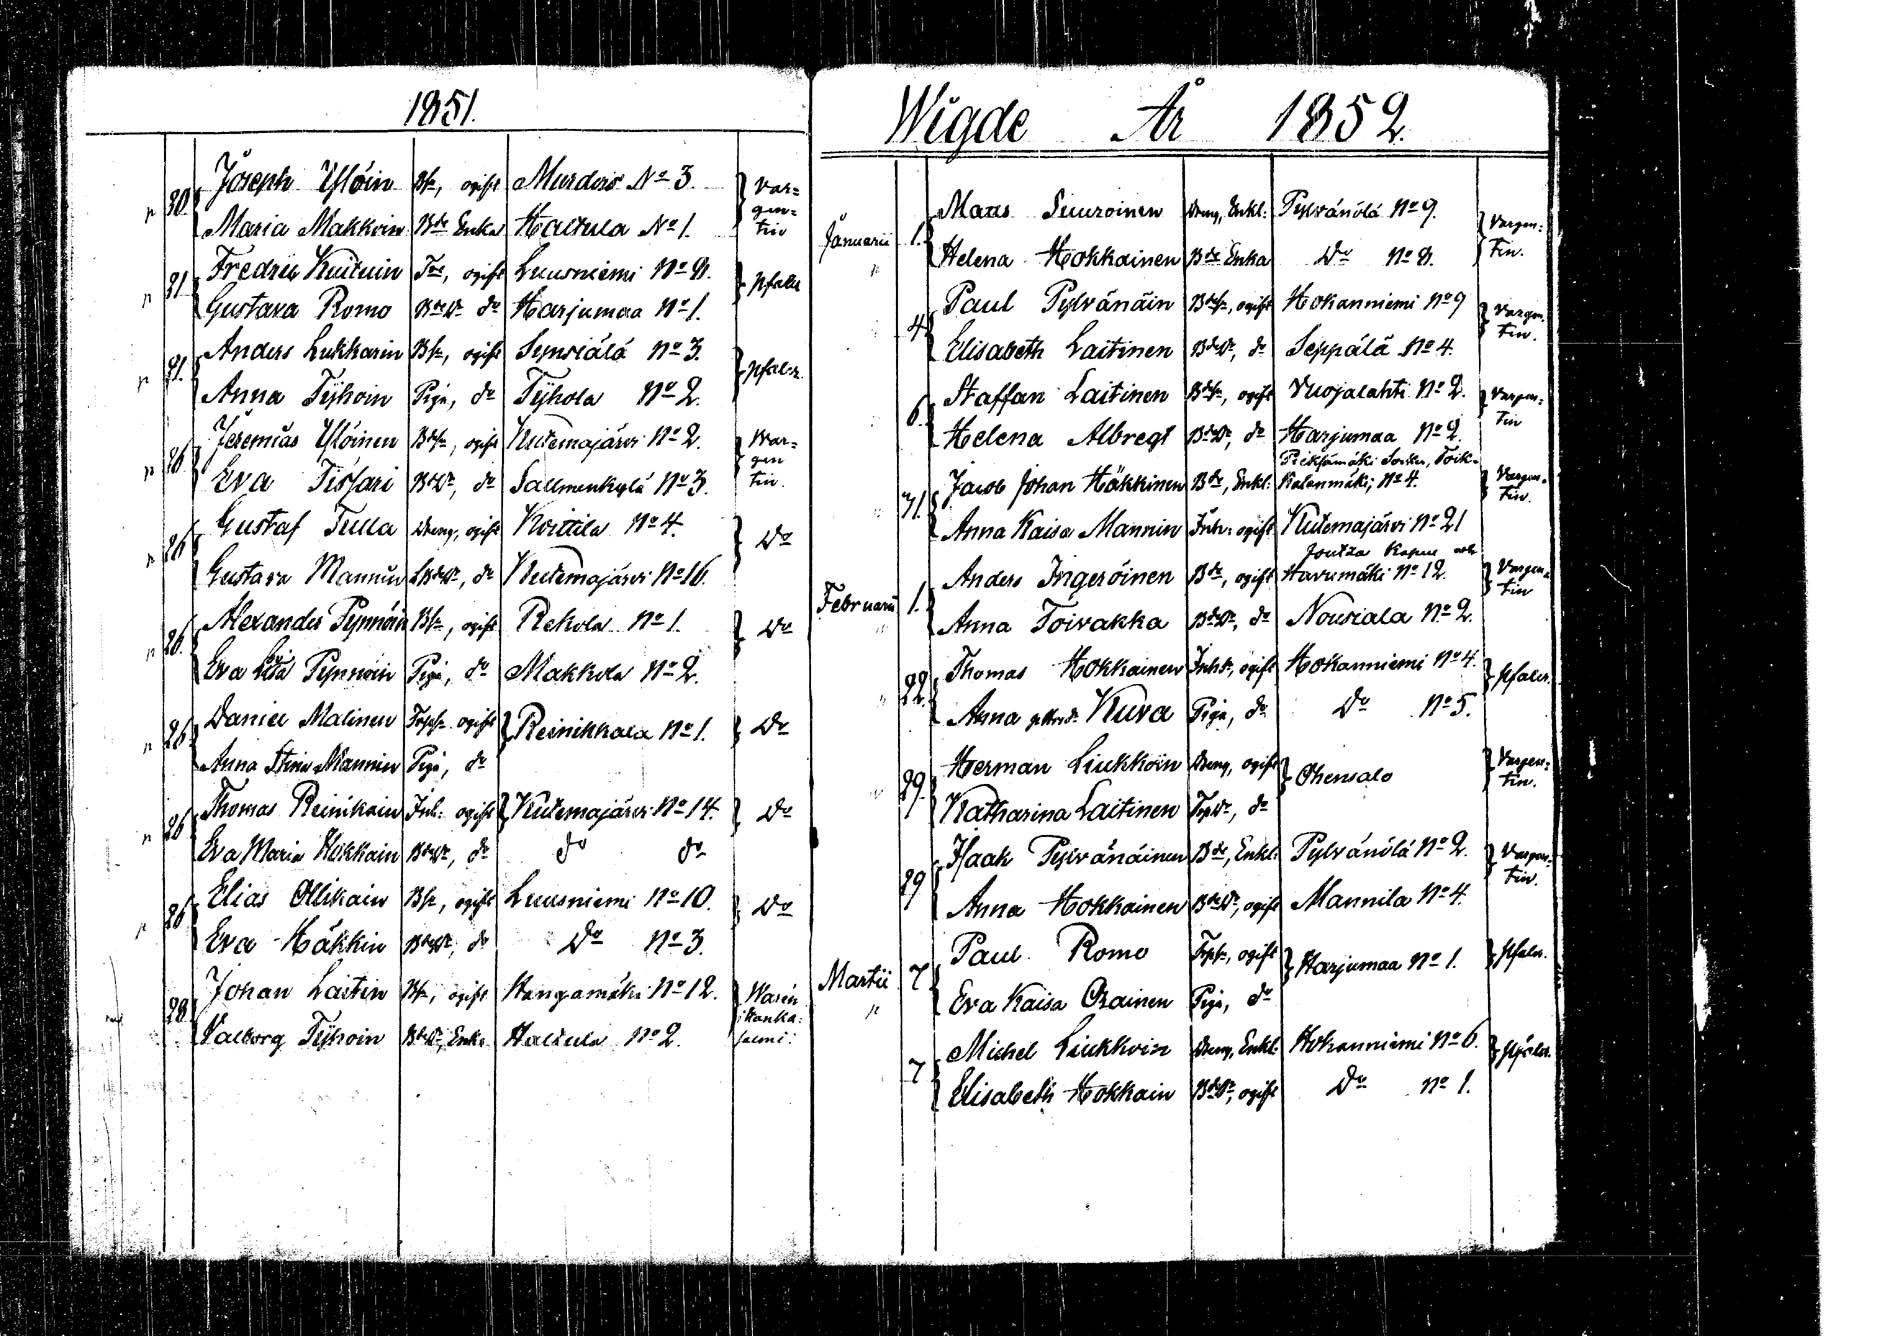 1851.
30. Joseph Ylöin Bs., ogift Murdero No 3. Var=
gen=
Maria Makkoin Bde Enka Haltula No 1. tin
31 Fredric Kuituin Tor, ogift Luusniemi No 8. Pfald
Gustava Romo BdeDr do Harjumaa No 1.
31. Anders Lukkarin Bs, ogift Synsiälä No 3. pfaldr.
Anna Tyhoin Piga, do Tyhola No 2.
26 Jeremias Ylöinen Bds, ogift Kutemajärvi No 2. War=
gen
Eva Tissari BdeDr, do Salmenkylä No 3. tin.
26 Gustaf Tulla Dreng, ogift Koittila No 4. Do
Gustava Mannin do Kutemajärvi No 16.
26 Alexander Pynnöin Bs, ogift Rekola No 1. Do
Eva Pynnöin Piga, do Makkola No 2.
26 Daniel Malinen ogift Reinikkala No 1. Do
Anna Stina Mannin Piga, do
26 Thomas Reinikain Inh: ogift Kutemajärvi No 14. Do
Eva Maria Hokkain BdeDr, do do do
26 Elias Ollikain Bs, ogift Luusniemi No 10. Do
Eva Häkkin BdeDr, do Do No 3.
28 Johan Laitin Bs, ogift Kangamäki No 12. Warén
i Kanka:
Valborg Tyhoin BdeDr, Enka Haltula No 2. salmi.
Wigde År 1852.
Januarii 1. Mats Suuroinen Dreng, Enkl: Pylvänälä No 9. Vargen=
Helena Hokkainen Bde Enka Do No 8. tin.
4 Paul Pylvänäin Bds, ogift Hokanniemi No 9 Vargen
Elisabeth Laitinen BdeDr, do Seppälä No 4. tin.
6. Staffan Laitinen Bds, ogift Vuojalahti No 2. Vargen=
Helena Albregt BdeDr, do Harjumaa No 2. tin
Pieksämäki Socken, Toik=
31. Jacob Johan Häkkinen Bde, Enkl: kalanmäki; No 4. Vargen=
tin.
Anna Kaisa Mannin Inh: ogift Kutemajärvi No 21
Joutza Kapell och
Februarii 1. Anders Ingeröinen Bde, ogift Havumäki No 12. Vargen=
tin
Anna Toivakka BdeDr, do Nousiala No 2.
22. Thomas Hokkainen Inhs, ogift Hokanniemi No 4. Pfaldr.
Anna Kuva Piga, do Do No 5.
29. Herman Liukkoin Dreng, ogift Ohensalo Vargen=
tin.
Katharina Laitinen TrpDr, do
29 Isaak Pylvänäinen Bde, Enkl: Pylvänälä No 2. Vargen=
tin.
Anna Hokkainen BdeDr, ogift Mannila No 4.
Martii 7 Paul Romo Trps, ogift Harjumaa No 1. Pfaldr.
Eva Kaisa Orainen Piga, do
7 Michel Liukkoin Dreng, Enkl: Hokanniemi No 6. Pfaldr.
Elisabeth Hokkain BdeDr, ogift Do No 1.